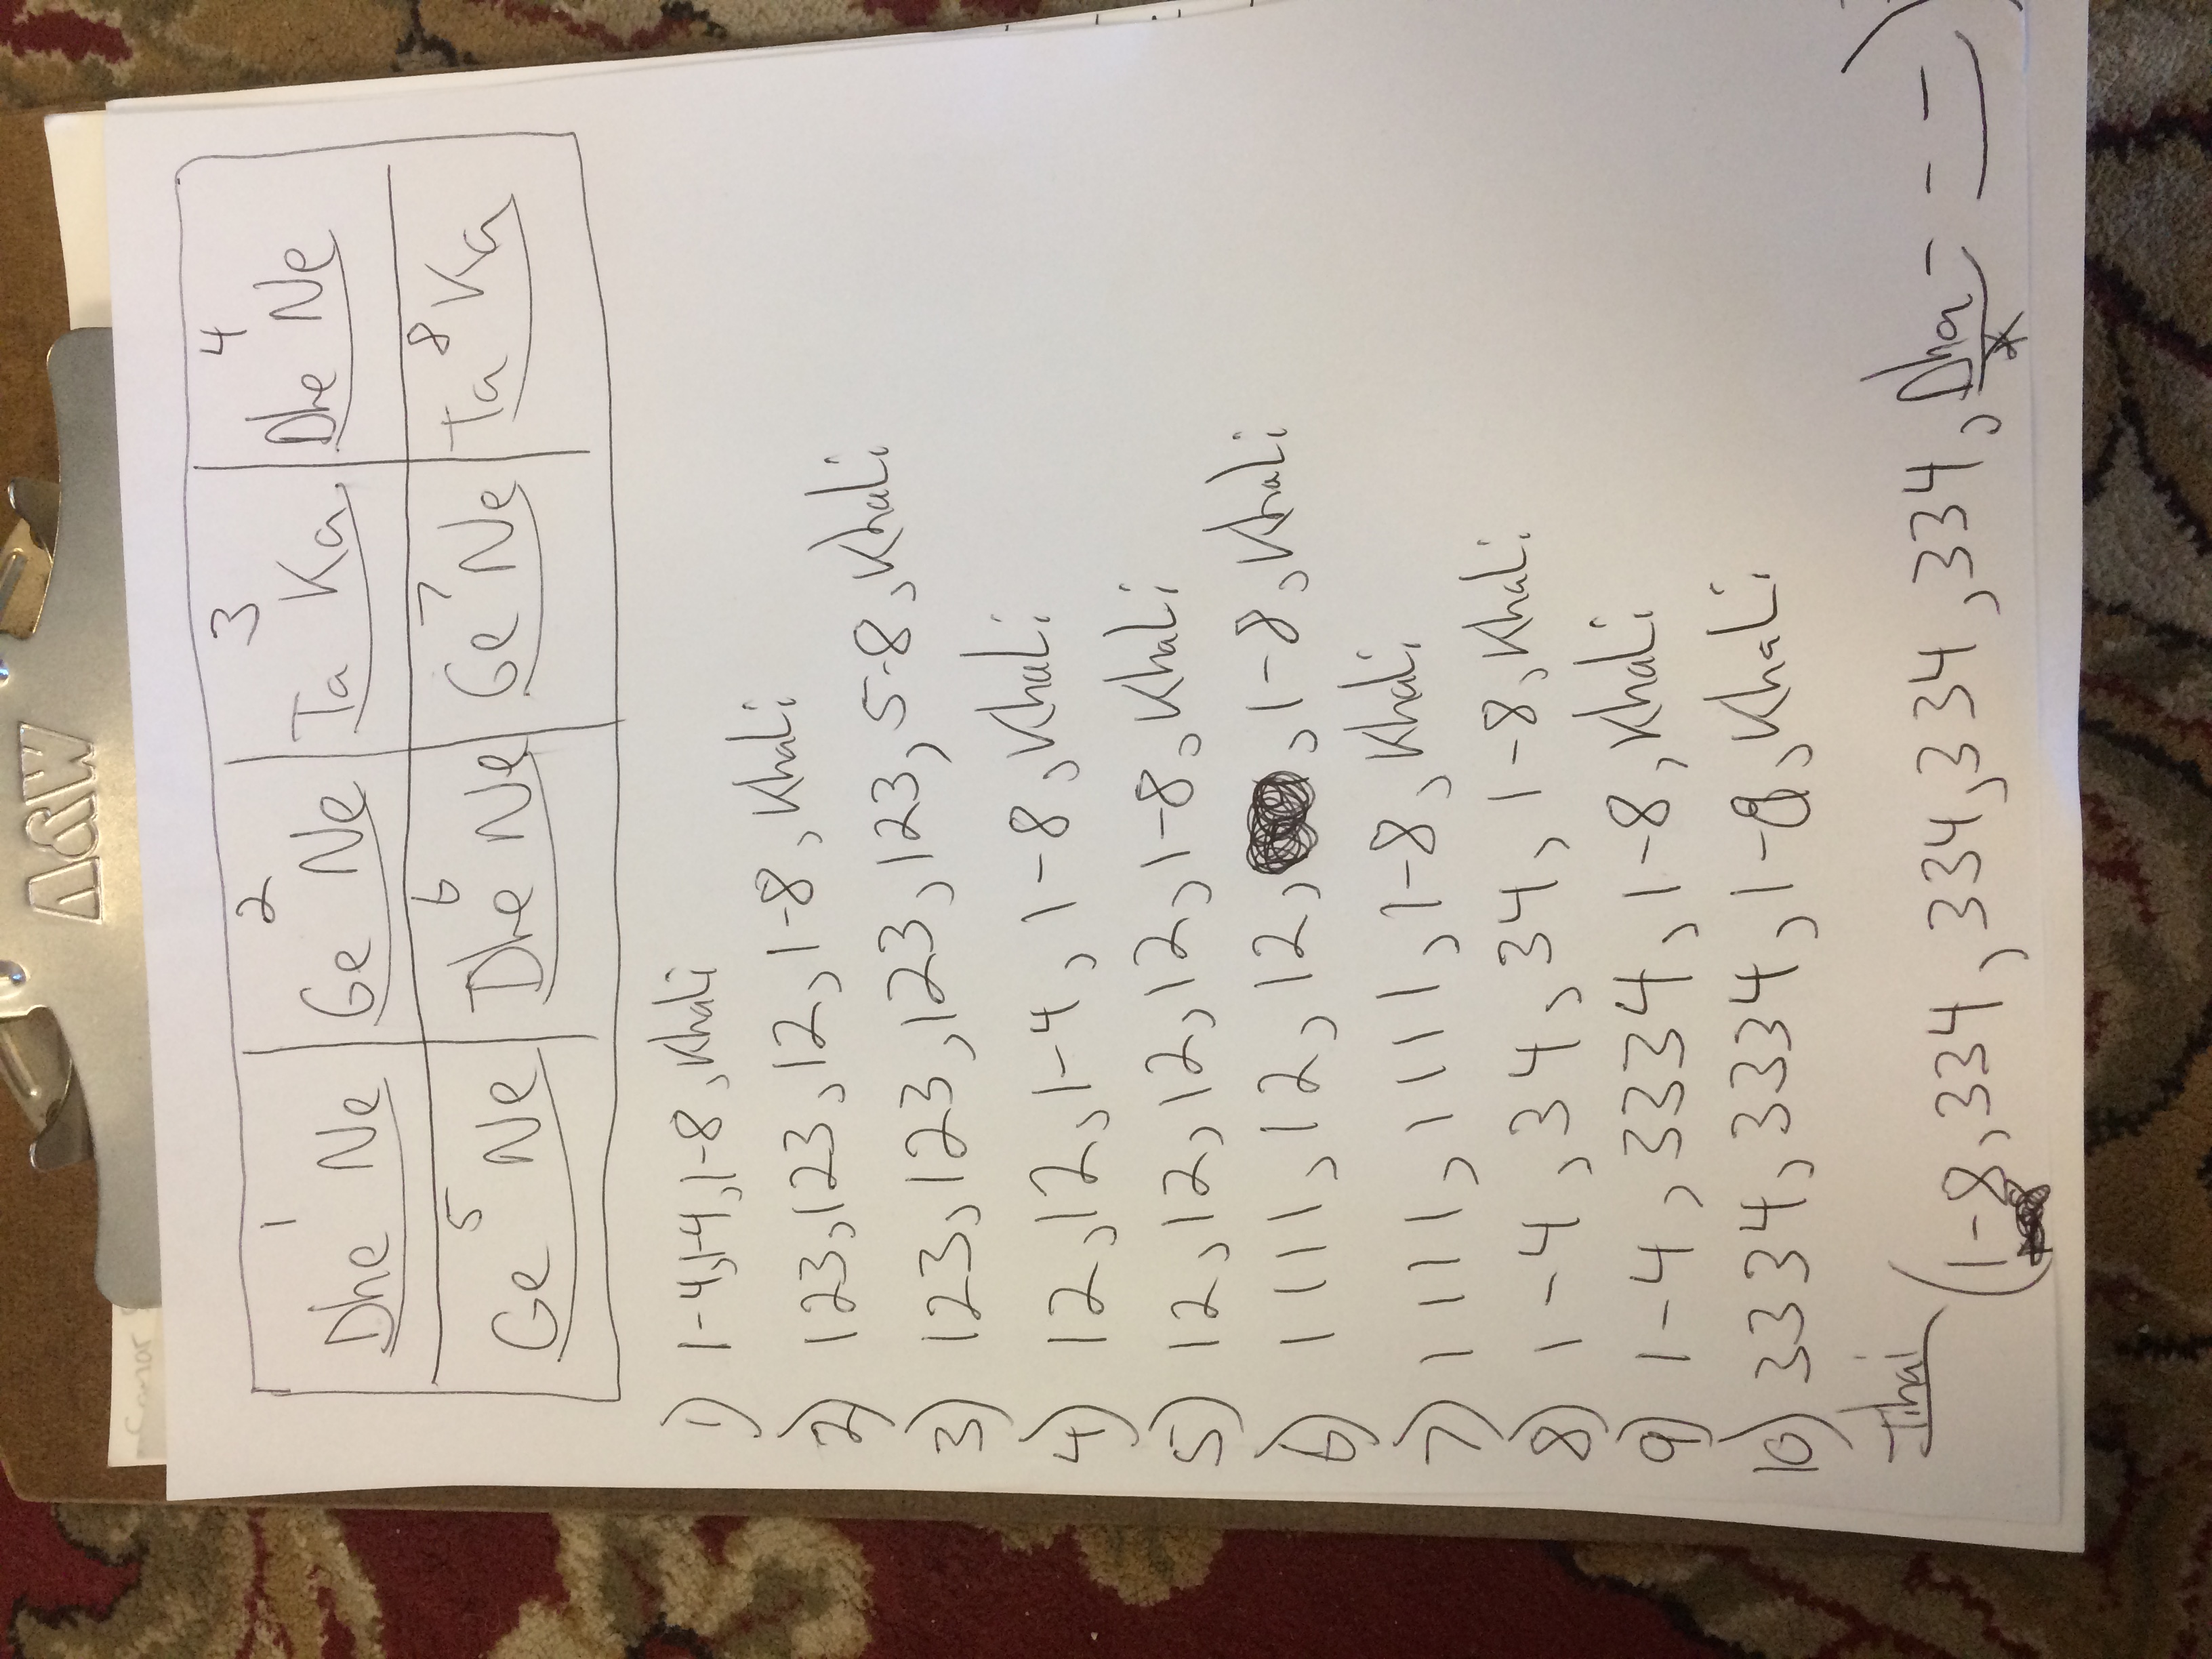 A&W
1 2 3 4
Dhe Ne Ge Ne Ta Ka Dhe Ne
5 6 7 8
Ge Ne Dhe Ne Ge Ne Ta Ka
1) 1-4,1-4,1-8, Khali
2) 123,123,12,1-8, Khali
3) 123,123,123,123,5-8, Khali
4) 12,12,1-4, 1-8, Khali
5) 12,12,12,12,1-8, Khali
6) 1111,12,12, ,1-8, Khali
7) 1111,1111,1-8, Khali
8) 1-4,34,34,1-8, Khali
9) 1-4,3334,1-8, Khali
10) 3334,3334,1-8, Khali
Tihai (1-8,334,334,334,334,Dha - - -)
*